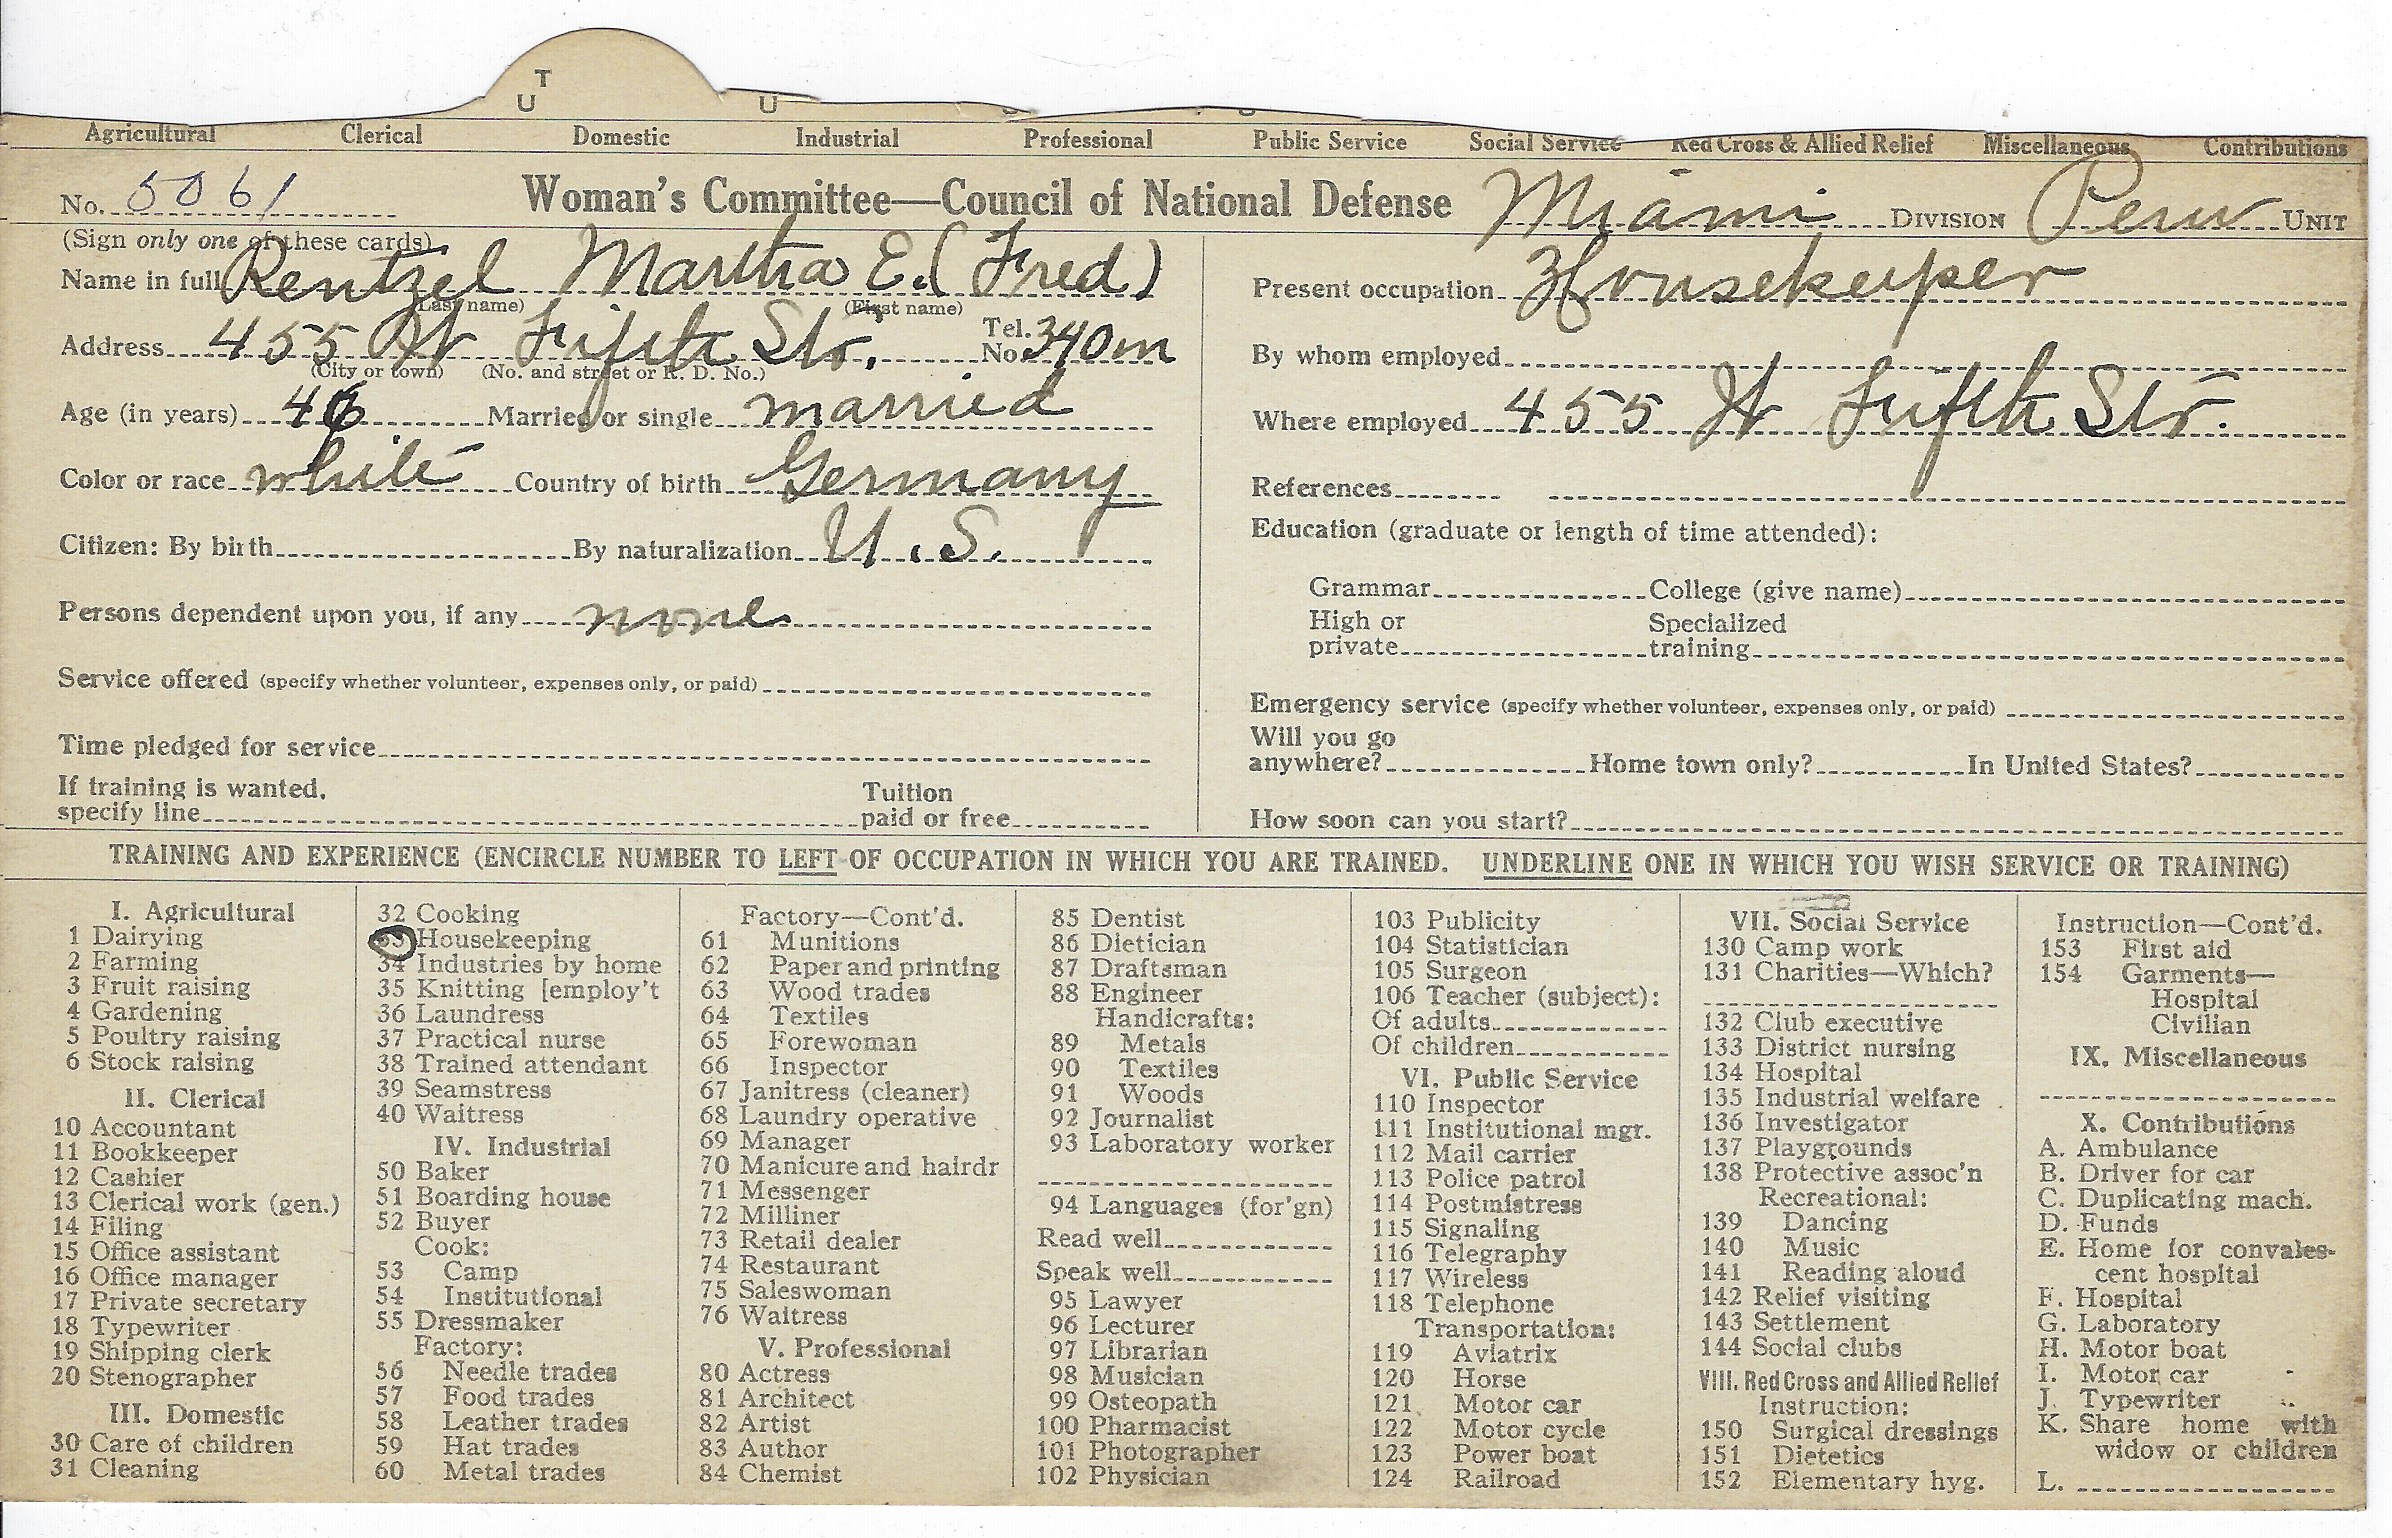 T
U U
Agricultural Clerical Domestic Industrial Professional Public Service Social Service Red Cross & Allied Relief Miscellaneous Contributions
No. 5061 Woman's Committee—Council of National Defense Miami DIVISION Peru UNIT
(Sign only one of these cards)
Name in full Rentzel Martha E. (Fred)
(Last name) (First name)
Address 455 W Fifth Str. Tel. No. 340m
(City or town) (No. and street or R. D. No.)
Age (in years) 46 Married or single married
Color or race white Country of birth Germany
Citizen: By birth By naturalization U. S.
Persons dependent upon you, if any none
Service offered (specify whether volunteer, expenses only, or paid)
Time pledged for service
If training is wanted, Tuition
specify line paid or free
Present occupation Housekeeper
By whom employed
Where employed 455 W Fifth Str.
References
Education (graduate or length of time attended):
Grammar College (give name)
High or Specialized
private training
Emergency service (specify whether volunteer, expenses only, or paid)
Will you go
anywhere? Home town only? In United States?
How soon can you start?
TRAINING AND EXPERIENCE (ENCIRCLE NUMBER TO LEFT OF OCCUPATION IN WHICH YOU ARE TRAINED. UNDERLINE ONE IN WHICH YOU WISH SERVICE OR TRAINING)
I. Agricultural
1 Dairying
2 Farming
3 Fruit raising
4 Gardening
5 Poultry raising
6 Stock raising
II. Clerical
10 Accountant
11 Bookkeeper
12 Cashier
13 Clerical work (gen.)
14 Filing
15 Office assistant
16 Office manager
17 Private secretary
18 Typewriter
19 Shipping clerk
20 Stenographer
III. Domestic
30 Care of children
31 Cleaning
32 Cooking
33 Housekeeping
34 Industries by home
35 Knitting [employ't
36 Laundress
37 Practical nurse
38 Trained attendant
39 Seamstress
40 Waitress
IV. Industrial
50 Baker
51 Boarding house
52 Buyer
Cook:
53 Camp
54 Institutional
55 Dressmaker
Factory:
56 Needle trades
57 Food trades
58 Leather trades
59 Hat trades
60 Metal trades
Factory—Cont'd.
61 Munitions
62 Paper and printing
63 Wood trades
64 Textiles
65 Forewoman
66 Inspector
67 Janitress (cleaner)
68 Laundry operative
69 Manager
70 Manicure and hairdr
71 Messenger
72 Milliner
73 Retail dealer
74 Restaurant
75 Saleswoman
76 Waitress
V. Professional
80 Actress
81 Architect
82 Artist
83 Author
84 Chemist
85 Dentist
86 Dietician
87 Draftsman
88 Engineer
Handicrafts:
89 Metals
90 Textiles
91 Woods
92 Journalist
93 Laboratory worker
94 Languages (for'gn)
Read well
Speak well
95 Lawyer
96 Lecturer
97 Librarian
98 Musician
99 Osteopath
100 Pharmacist
101 Photographer
102 Physician
103 Publicity
104 Statistician
105 Surgeon
106 Teacher (subject):
Of adults
Of children
VI. Public Service
110 Inspector
111 Institutional mgr.
112 Mail carrier
113 Police patrol
114 Postmistress
115 Signaling
116 Telegraphy
117 Wireless
118 Telephone
Transportation:
119 Aviatrix
120 Horse
121 Motor car
122 Motor cycle
123 Power boat
124 Railroad
VII. Social Service
130 Camp work
131 Charities—Which?
132 Club executive
133 District nursing
134 Hospital
135 Industrial welfare
136 Investigator
137 Playgrounds
138 Protective assoc'n
Recreational:
139 Dancing
140 Music
141 Reading aloud
142 Relief visiting
143 Settlement
144 Social clubs
VIII. Red Cross and Allied Relief
Instruction:
150 Surgical dressings
151 Dietetics
152 Elementary hyg.
Instruction—Cont'd.
153 First aid
154 Garments—
Hospital
Civilian
IX. Miscellaneous
X. Contributions
A. Ambulance
B. Driver for car
C. Duplicating mach.
D. Funds
E. Home for convales-
cent hospital
F. Hospital
G. Laboratory
H. Motor boat
I. Motor car
J. Typewriter
K. Share home with
widow or children
L.